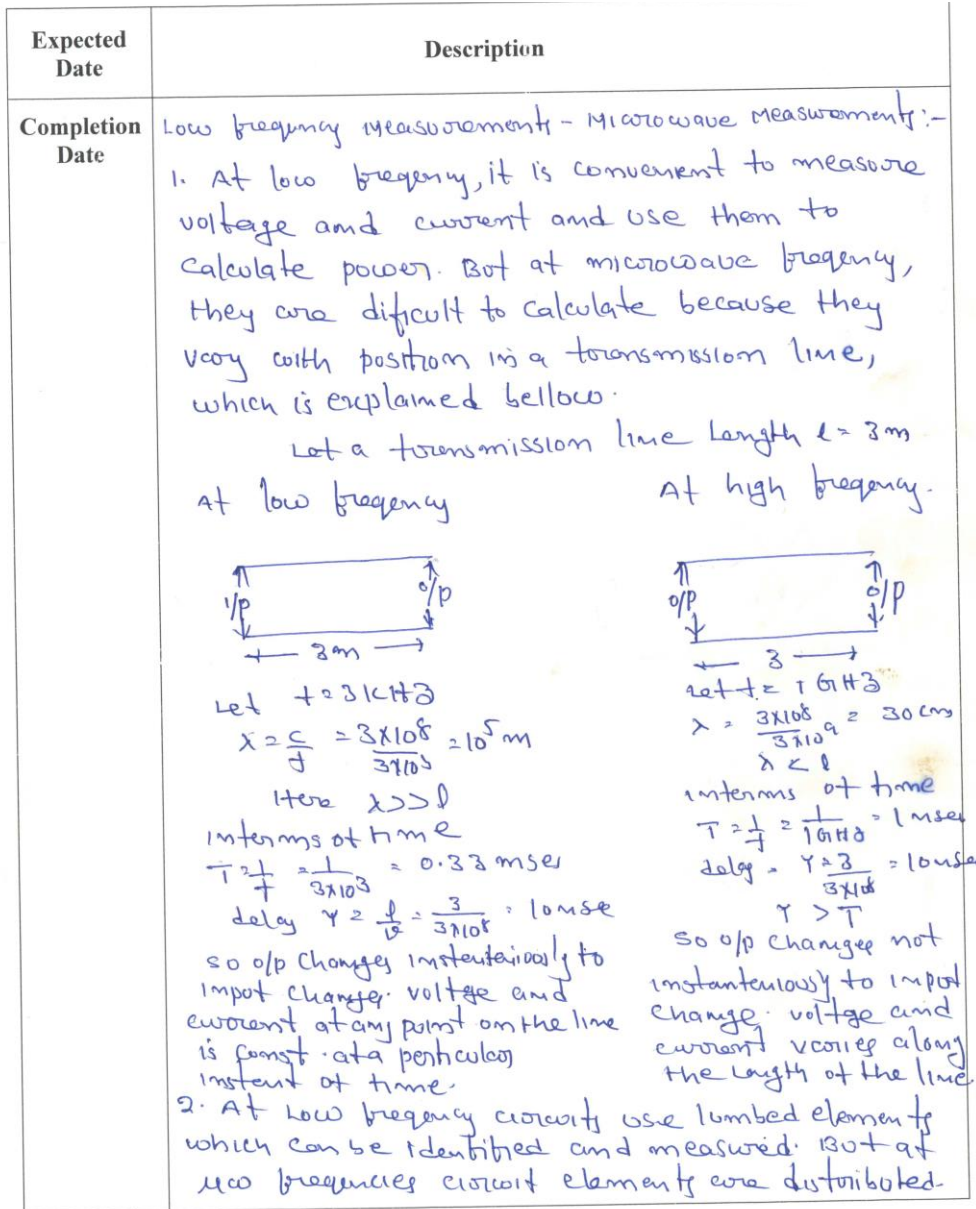 Expected Date
Description
Completion Date
Low freqency Measurements - Microwave Measurements:-
1. At low freqency, it is convenient to measure
voltage and current and use them to
calculate power. But at microwave freqency,
they are dificult to calculate because they
vary with position in a transmission line,
which is explained bellow.
Let a transmission line Length l = 3m
At low freqency
I/P
O/P
3m
Let f = 3KHz
λ = c/f = 3X10^8/3X10^3 = 10^5 m
Here λ>>l
interms of time
T = 1/f = 1/3X10^3 = 0.33 msec
delay γ = l/v = 3/3X10^8 = 10nse
so o/p Changes instenteniously to
input change. voltge and
current at any point on the line
is const. at a perticular
instent of time.
At high freqency.
O/P
O/P
3
Let f = 1 GHz
λ = 3X10^8/3X10^9 = 30 cms
λ < l
interms of time
T = 1/f = 1/1GHz = 1 nsec
delay = γ = 3/3X10^8 = 10nse
γ > T
so o/p changes not
instanteniously to input
change. voltge and
current varies along
the length of the line.
2. At Low freqency circuits use lumbed elements
which can be identified and measured. But at
μω freqencies circuit elements are distributed.